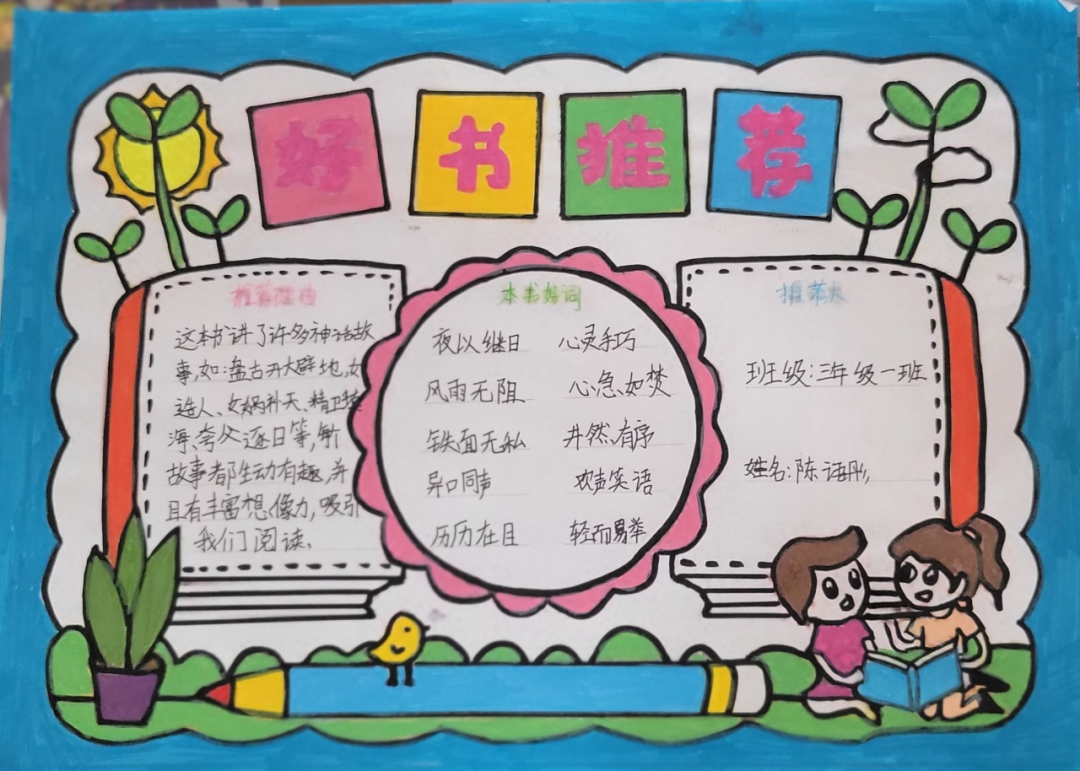 好书推荐
推荐理由
这本书讲了许多神话故
事,如:盘古开大辟地,女
造人、女娲补天、精卫填
海、夸父逐日等,所
故事都生动有趣,并
且有丰富想像力,吸引
我们阅读。
本书好词
夜以继日 心灵手巧
风雨无阻 心急如焚
铁面无私 井然有序
异口同声 欢声笑语
历历在目 轻而易举
推荐人
班级:三年级一班
姓名:陈语彤